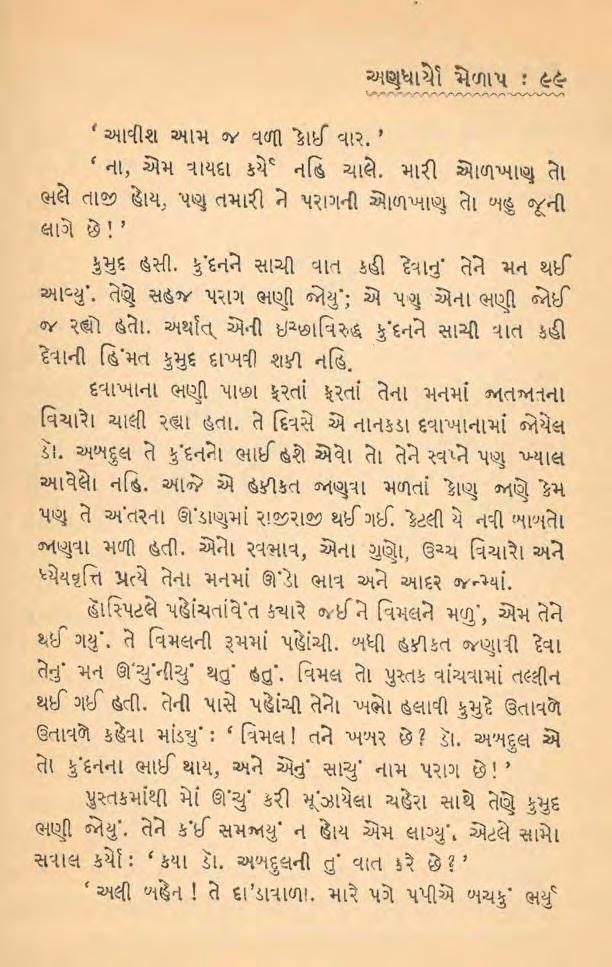 અણધાર્યો મેળાપ : ૯૯
‘ આવીશ આમ જ વળી કોઈ વાર. ’
‘ ના, એમ વાયદા કર્યે નહિ ચાલે. મારી ઓળખાણ તો
ભલે તાજી હોય, પણ તમારી ને પરાગની ઓળખાણ તો બહુ જૂની
લાગે છે ! ’
કુમુદ હસી. કુંદનને સાચી વાત કહી દેવાનું તેને મન થઈ
આવ્યું. તેણે સહજ પરાગ ભણી જોયું; એ પણ એના ભણી જોઈ
જ રહ્યો હતો. અર્થાત્ એની ઇચ્છાવિરુદ્ધ કુંદનને સાચી વાત કહી
દેવાની હિંમત કુમુદ દાખવી શકી નહિ.
દવાખાના ભણી પાછા ફરતાં ફરતાં તેના મનમાં જાતજાતના
વિચારો ચાલી રહ્યા હતા. તે દિવસે એ નાનકડા દવાખાનામાં જોયેલ
ડૉ. અબદુલ તે કુંદનનો ભાઈ હશે એવો તો તેને સ્વપ્ને પણ ખ્યાલ
આવેલો નહિ. આજે એ હકીકત જાણવા મળતાં કોણ જાણે કેમ
પણ તે અંતરના ઊંડાણમાં રાજીરાજી થઈ ગઈ. કેટલી યે નવી બાબતો
જાણવા મળી હતી. એનો સ્વભાવ, એના ગુણો, ઉચ્ચ વિચારો અને
ધ્યેયવૃત્તિ પ્રત્યે તેના મનમાં ઊંડો ભાવ અને આદર જન્મ્યાં.
હૉસ્પિટલે પહોંચતાંવેંત ક્યારે જઈને વિમલને મળું, એમ તેને
થઈ ગયું. તે વિમલની રૂમમાં પહોંચી. બધી હકીકત જણાવી દેવા
તેનું મન ઊંચુંનીચું થતું હતું. વિમલ તો પુસ્તક વાંચવામાં તલ્લીન
થઈ ગઈ હતી. તેની પાસે પહોંચી તેનો ખભો હલાવી કુમુદે ઉતાવળે
ઉતાવળે કહેવા માંડ્યું : ‘ વિમલ ! તને ખબર છે ? ડૉ. અબદુલ એ
તો કુંદનના ભાઈ થાય, અને એનું સાચું નામ પરાગ છે ! ’
પુસ્તકમાંથી મોં ઊંચું કરી મૂંઝાયેલા ચહેરા સાથે તેણે કુમુદ
ભણી જોયું. તેને કંઈ સમજાયું ન હોય એમ લાગ્યું. એટલે સામો
સવાલ કર્યો : ‘ કયા ડૉ. અબદુલની તું વાત કરે છે ? ’
‘ અલી બહેન ! તે દા'ડાવાળા. મારે પગે પપીએ બચકું ભર્યું